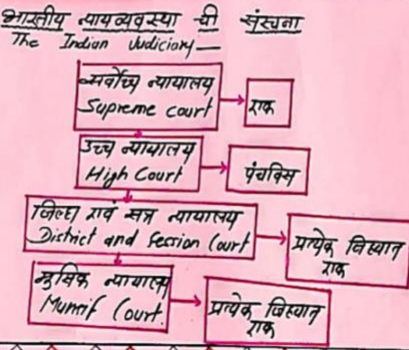 भारतीय न्यायव्यवस्था ची संरचना
The Indian Judiciary —
सर्वोच्च न्यायालय
Supreme court
एक
उच्च न्यायालय
High Court
पंचविस
जिल्हा एवं सत्र न्यायालय
District and Session Court
प्रत्येक जिल्ह्यात
एक
मुंसिफ न्यायालय
Munsif Court.
प्रत्येक जिल्ह्यात
एक